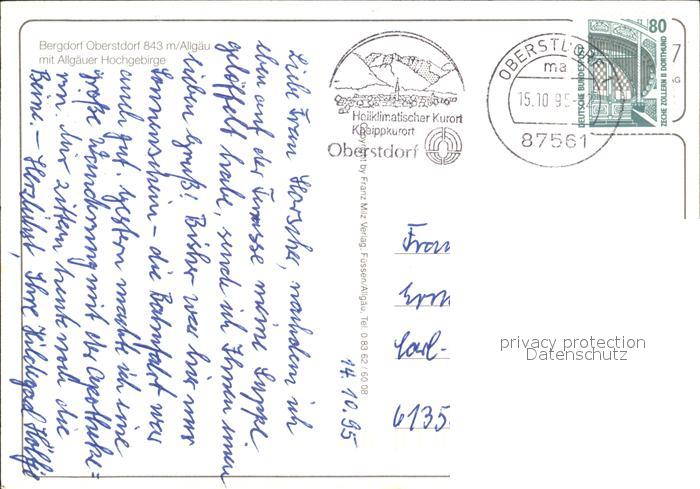 Bergdorf Oberstdorf 843 m/Allgäu
mit Allgäuer Hochgebirge
Heilklimatischer Kurort
Kneippkurort
Oberstdorf
OBERSTDORF 1
ma
15.10.95
87561
80
DEUTSCHE BUNDESPOST
ZECHE ZOLLERN II DORTMUND
Copyright by Franz Milz Verlag, Füssen/Allgäu, Tel. 0 83 62 / 60 08
14.10.95
Liebe Frau nachdem ich
eben auf der Terrasse meine Suppe
gelöffelt habe, sende ich Ihnen einen
lieben Gruß! Bisher war hier nur
Sonnenschein – die Bahnfahrt war
auch gut. Gestern machte ich eine
große Wanderung mit der Apotheke=
rin. Nur zittern heute noch die
Beine. – Herzlichst, Ihre Hildegard
Frau
Carl-
6135
privacy protection
Datenschutz